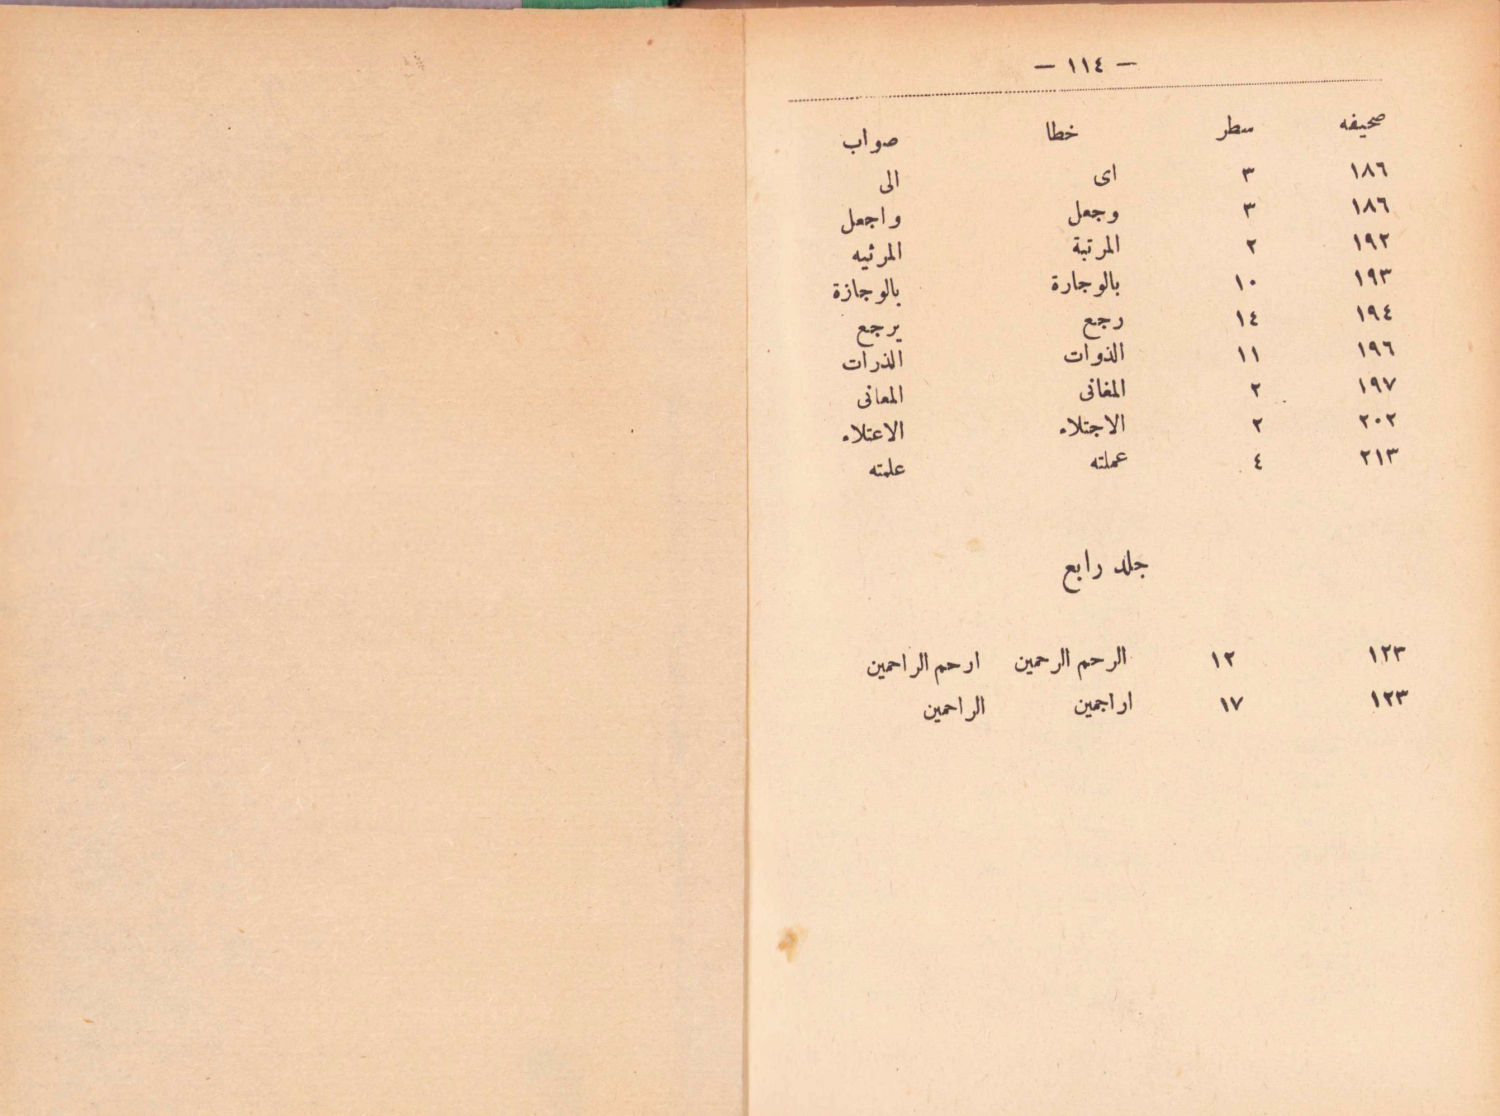 — ١١٤ —
صحيفه سطر خطا صواب
١٨٦ ٣ اى الى
١٨٦ ٣ وجعل واجعل
١٩٢ ٢ المرتبة المرثيه
١٩٣ ١٠ بالوجارة بالوجازة
١٩٤ ١٤ رجع يرجع
١٩٦ ١١ الذوات الذرات
١٩٧ ٢ المغانى المعانى
٢٠٢ ٢ الاجتلاء الاعتلاء
٢١٣ ٤ عملته علمته
جلد رابع
١٢٣ ١٢ الرحم الرحمين ارحم الراحمين
١٢٣ ١٧ اراجمين الراحمين